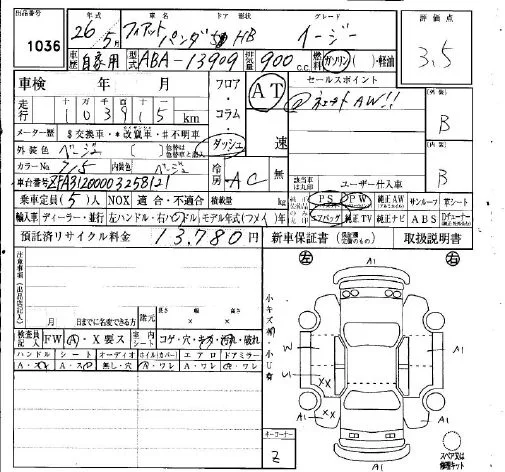 出品番号 1036
年式 26年 5月 車名 フィアット パンダ ドア 形状 5 HB グレード イージー 評価点 3.5
車歴 自家用 型式 ABA-13909 排気量 900 c.c. 燃料 ガソリン ( )・軽油
車検 年 月 フロア・コラム・ダッシュ AT 速 セールスポイント
走行 103915 km ② AW!! 外装 B
メーター歴 $交換車・*改鼠車・#不明車
外装色 ベージュ
カラーNo. 715 内装色 ベージュ 内装 B
車台番号 ZFA31200003258121 冷房 AC 無 ユーザー仕入車
乗車定員 (5)人 NOX 適合・不適合 積載量 kg PS PW 純正AW サンルーフ 革シート
輸入車 ディーラー・並行 左ハンドル・右ハンドル モデル年式(フメイ)年 エアバッグ 純正TV 純正ナビ ABS Dチューナー
預託済リサイクル料金 13,780円 新車保証書 (保証継承 交換のもの) 取扱説明書
注意事項 (出品店記入)
月 日までに名変できる方 諸元 長さ 幅 高さ × ×
検査員記入 FW A・X要ス 室内シート コゲ・穴・キズ・汚れ・破れ
ハンドル シート オーディオ ホイル(カバー) エアロ ドアミラー
A・スレ A・スレ 無し・穴 A・ワレ A・ワレ A・ワレ
小キズ・小U有
左 右
A1
W A1
U1 XX
XX A1 A1
A1
オーコーナー Z
スペア又は修理キット